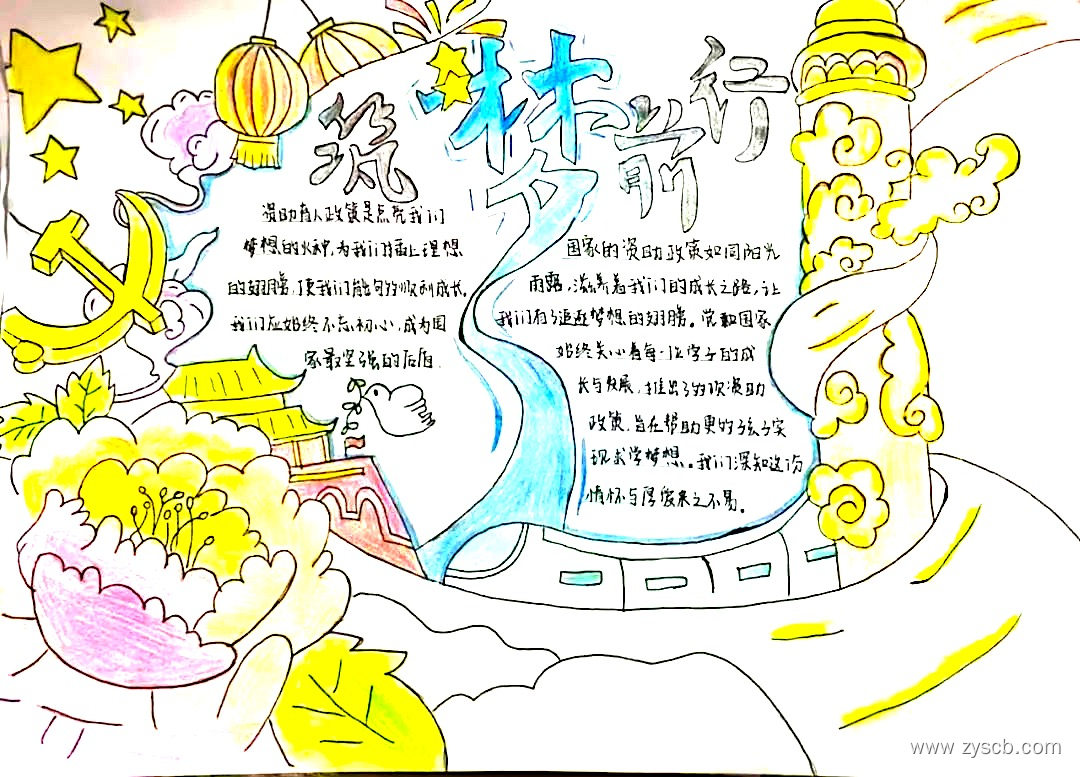 筑梦前行
资助育人政策是点亮我们
梦想的火种,为我们插上理想
的翅膀,使我们能够顺利成长。
我们应始终不忘初心,成为国
家最坚强的后盾.
国家的资助政策如同阳光
雨露,滋养着我们的成长之路,让
我们有了追逐梦想的翅膀。党和国家
始终关心着每一位学子的成
长与发展,推出了多项资助
政策,旨在帮助更多的孩子实
现求学梦想。我们深知这份
情怀与厚爱来之不易。
www.zyscb.com